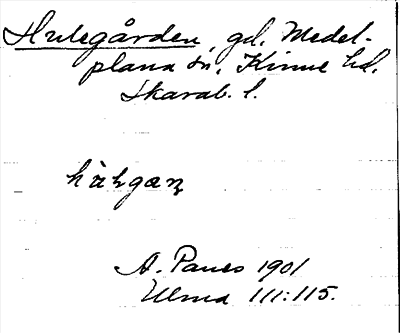 Hulegården, gd. Medel-
plana sn, Kinne hd.
Skarab. l.
A. Paues 1901
Ulma 111:115.